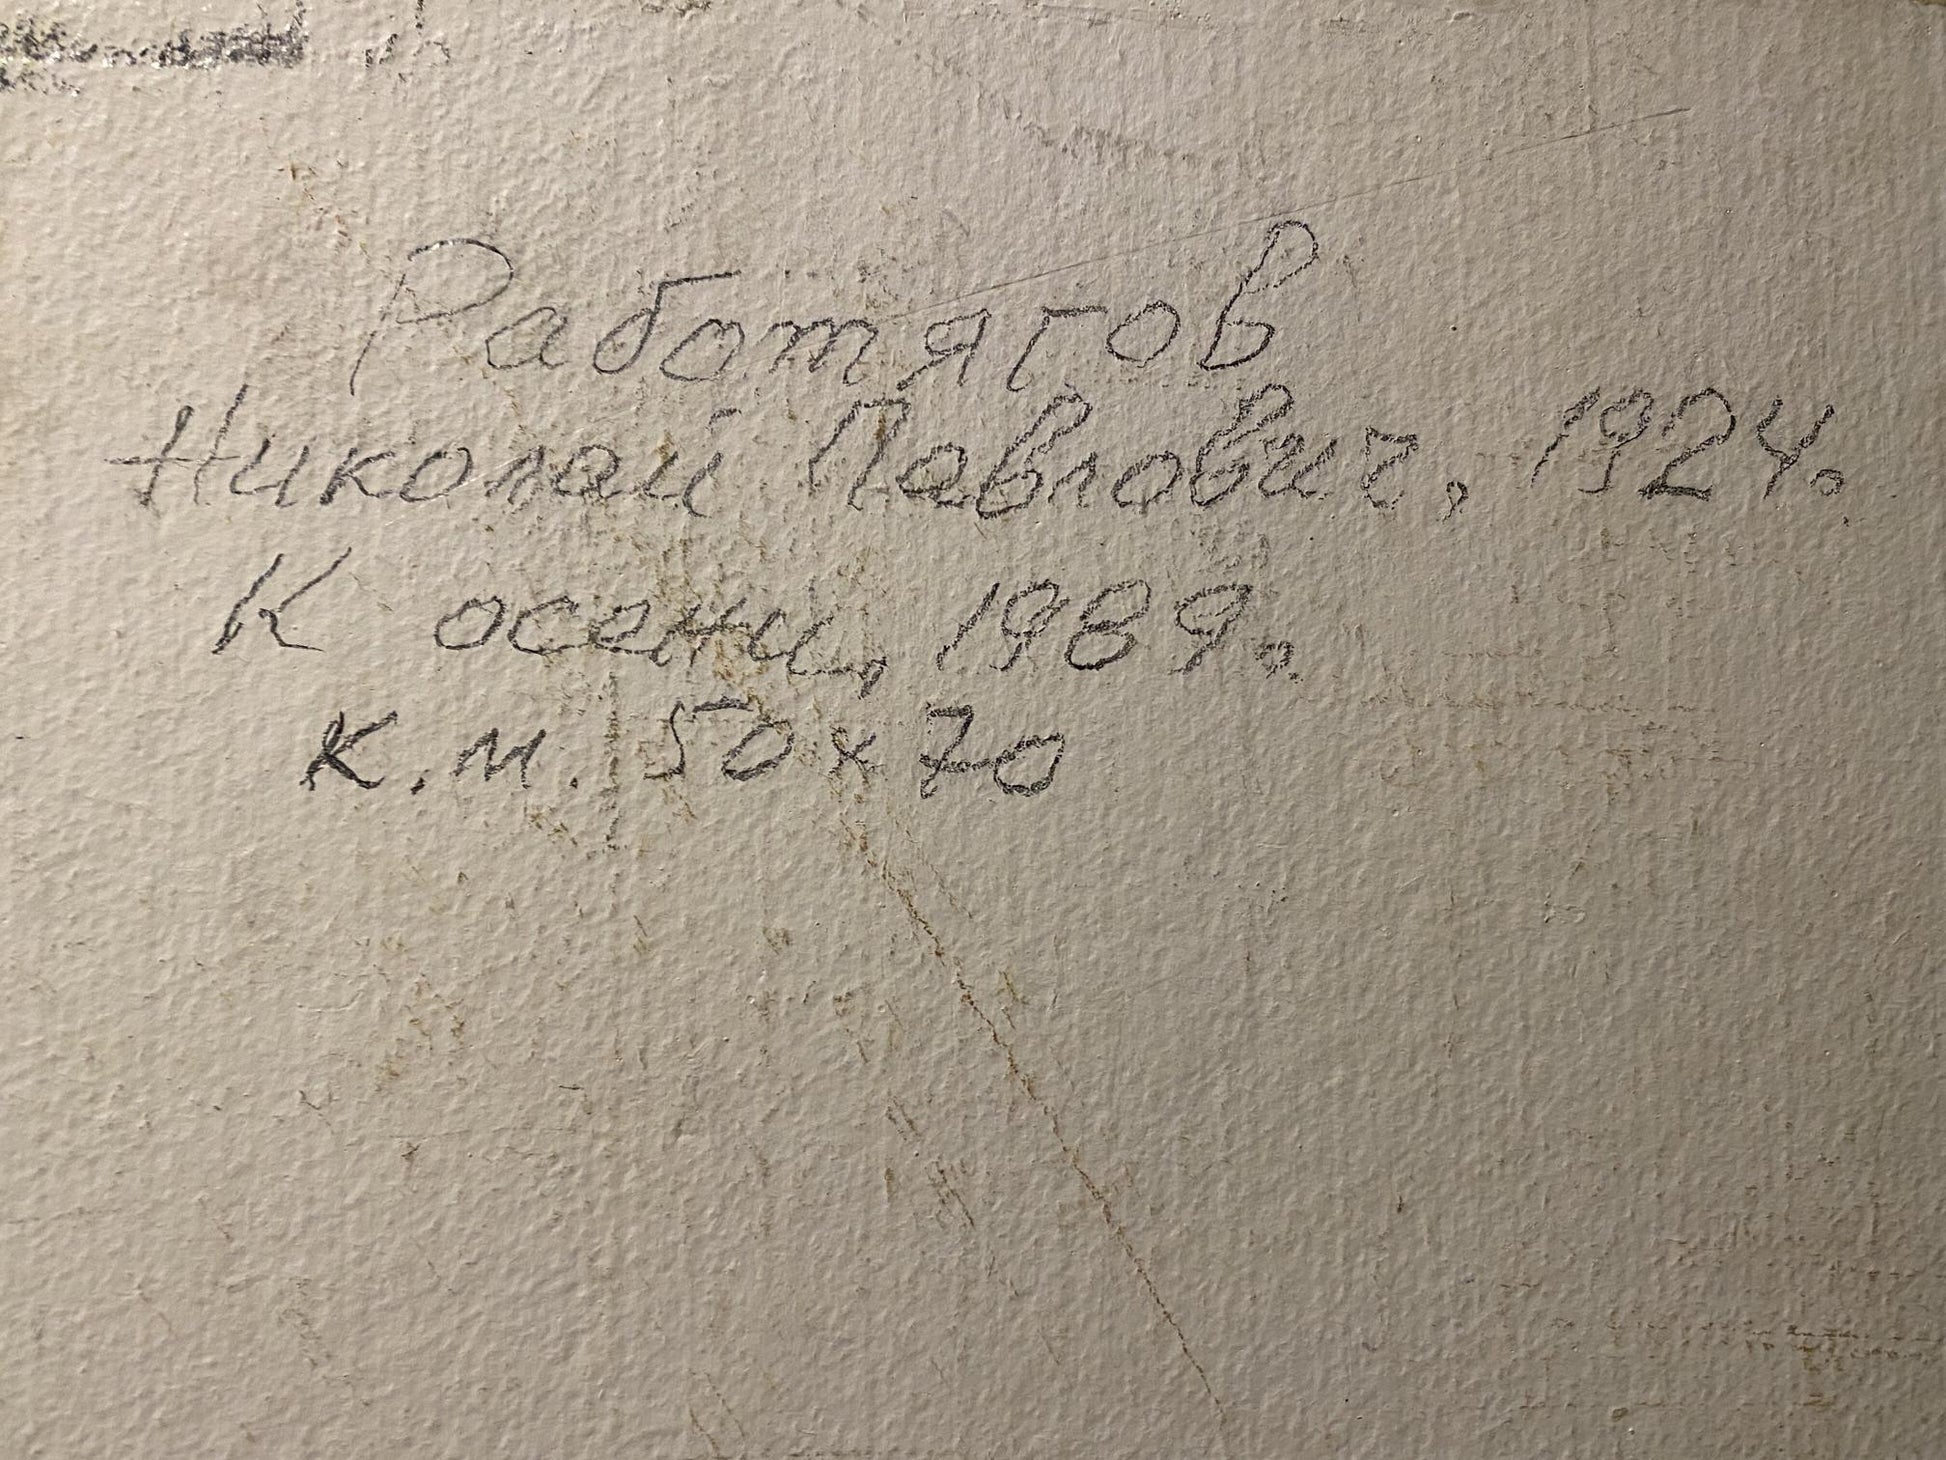 Работягов
Николай Павлович, 1924.
К осени, 1989.
к.м. 50x70